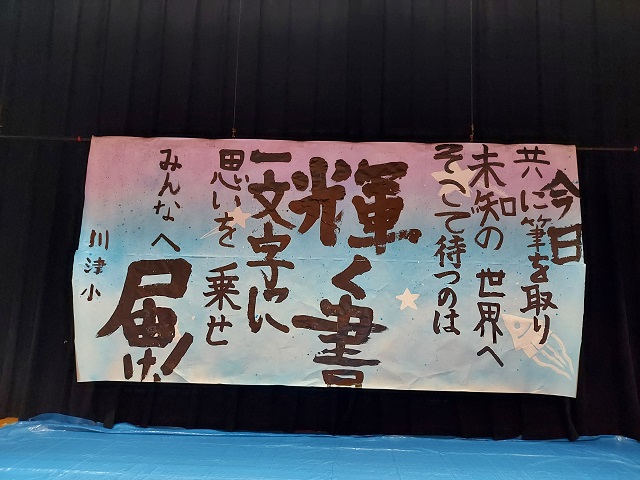 今日
共に筆を取り
未知の世界へ
そこで待つのは
輝く書
一文字に
思いを乗せ
みんなへ
届け!
川津小